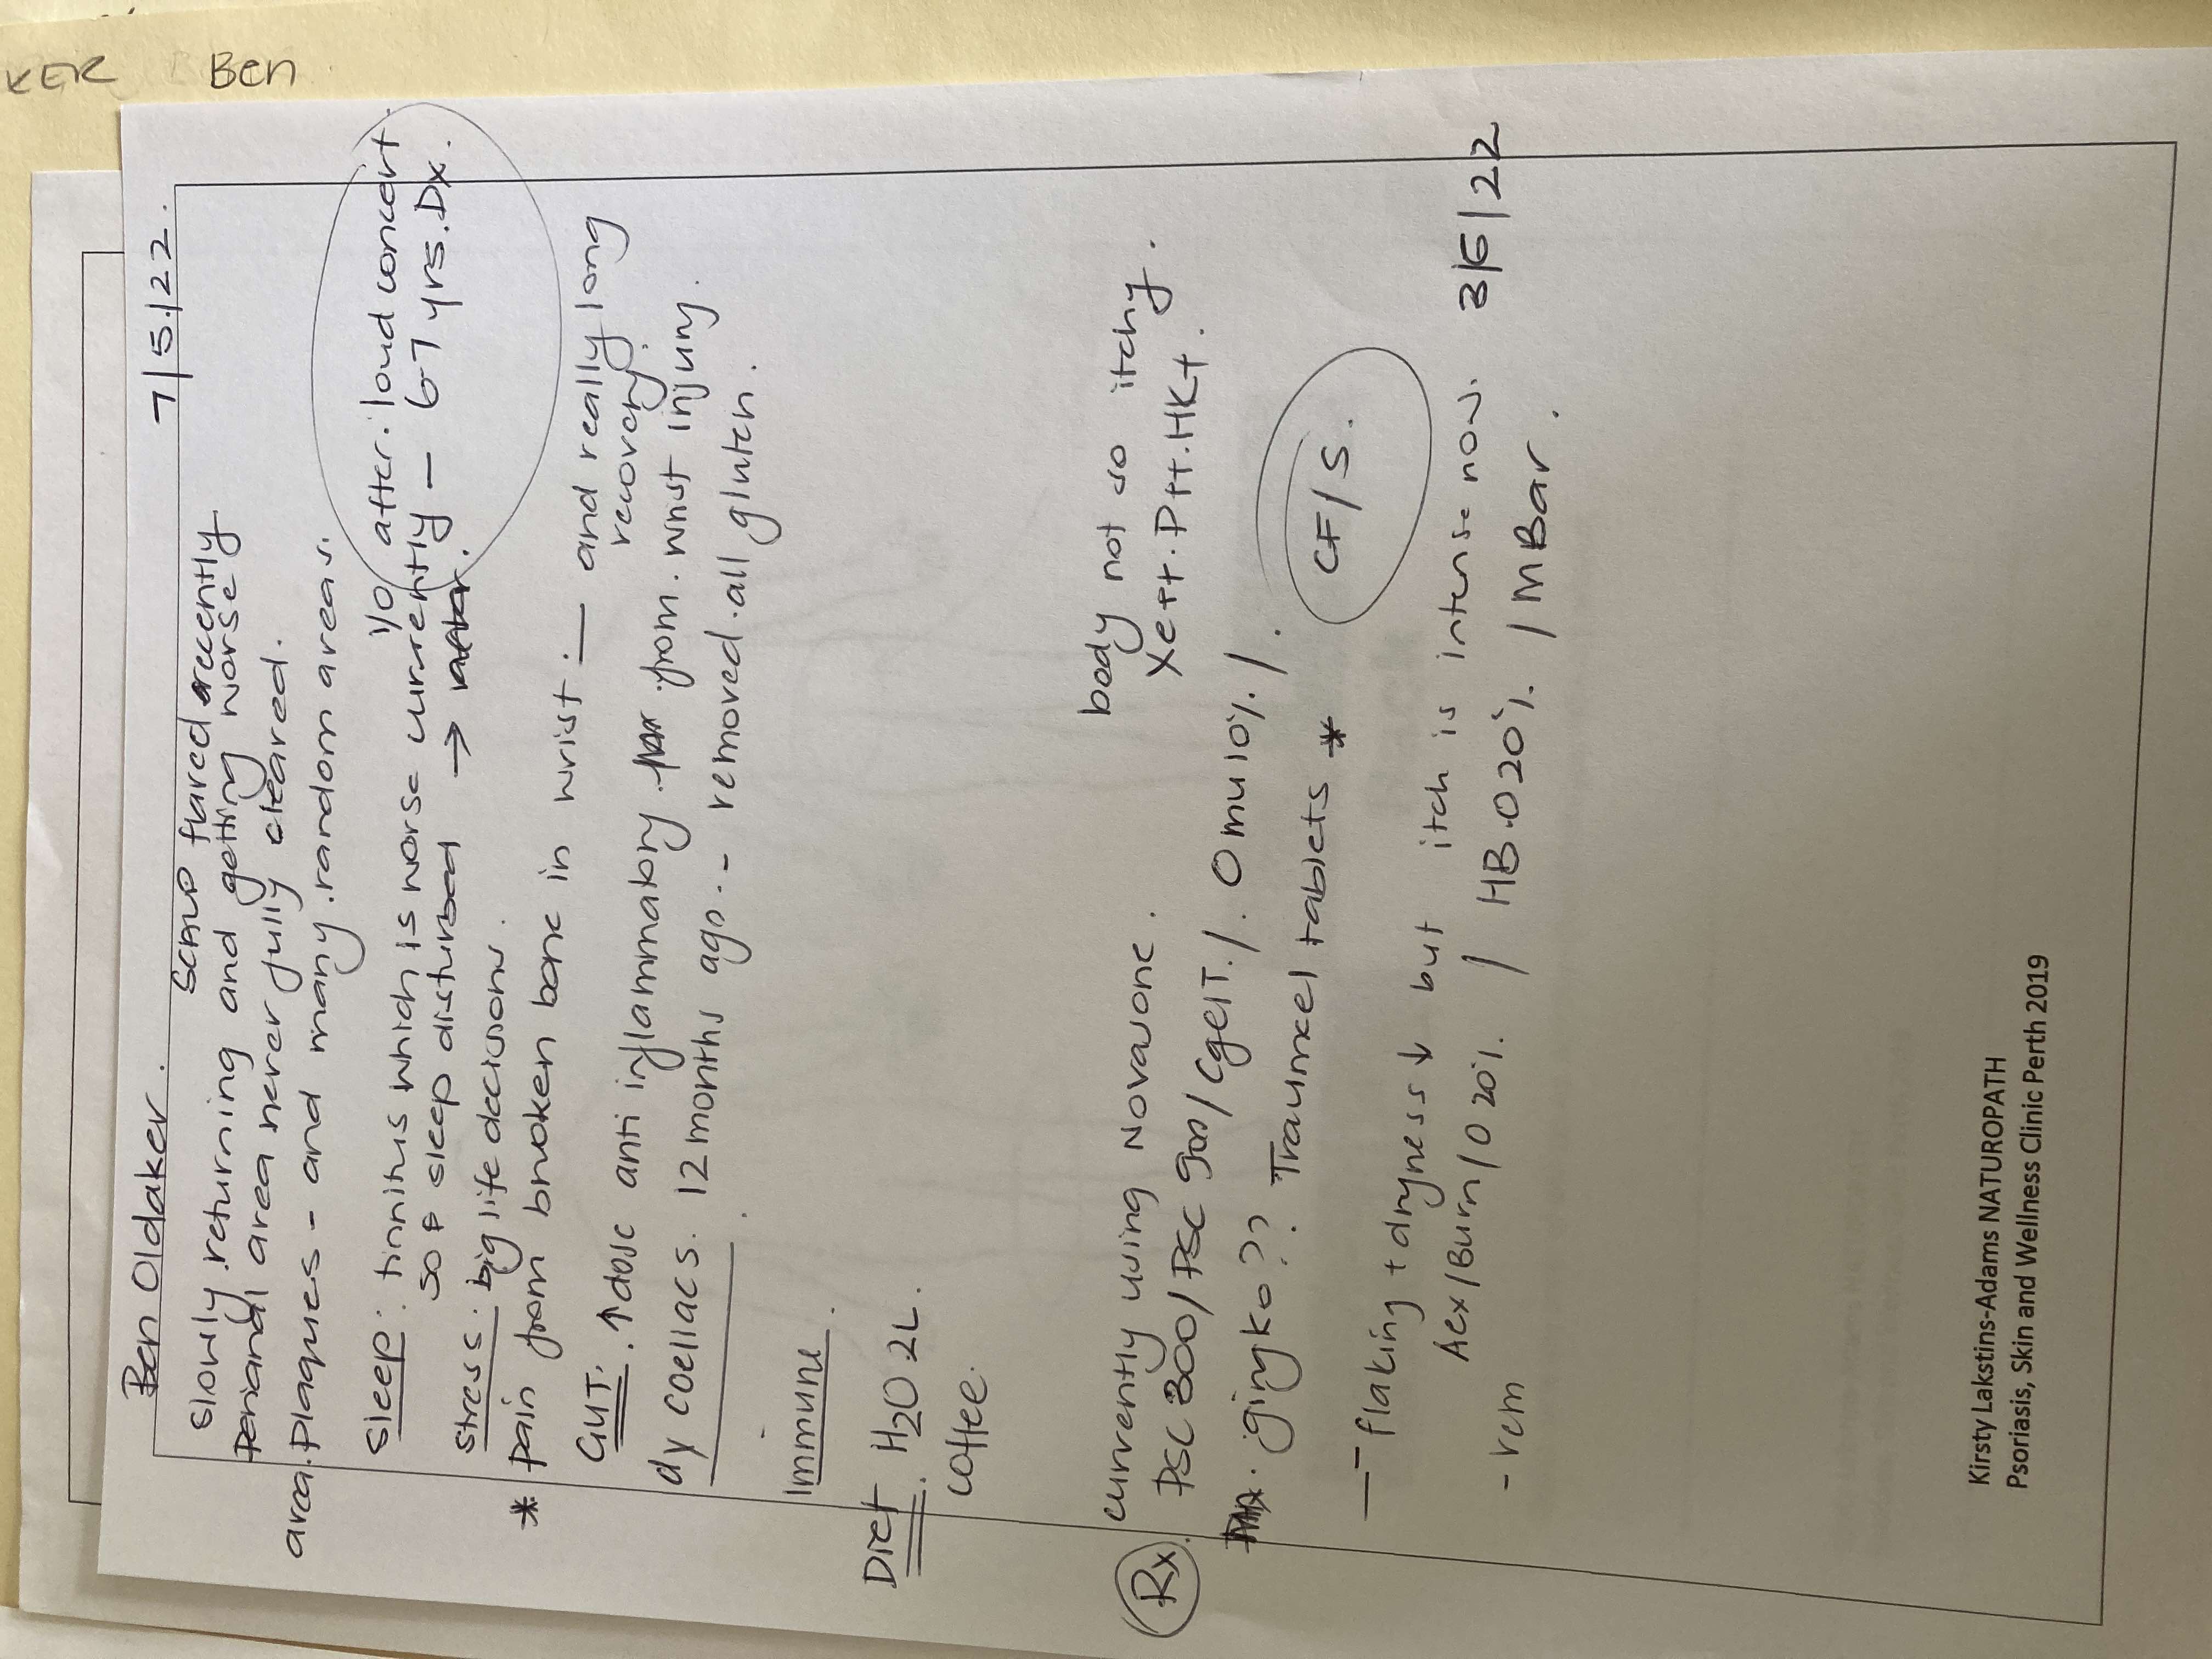 KER Ben
Ben Oldaker. 7/5/22.
scalp flared recently
slowly returning and getting worse
area never fully cleared.
area. plaques - and many random areas.
Y/O after loud concert.
Sleep: tinnitus which is worse currently — 6-7 yrs. Dx.
so sleep disturbed →
Stress: big life decisions.
* pain from broken bone in wrist. — and really long
recovery.
GUT. ↑ dose anti inflammatory from wrist injury.
dx coeliacs. 12 months ago. - removed all gluten.
Immune.
Diet. H2O 2L.
coffee.
currently using Novasone. body not so itchy.
Rx. PSC 300/PSC 900/CgelT./. Omu10%/. Xett.Ptt.HKt.
gingko?? Traumeel tablets * CF/S.
— flaking + dryness ↓ but itch is intense now. 3/6/22
Aex/Burn/O 20%. / HB.O 20%. / MBar.
- rem
Kirsty Lakstins-Adams NATUROPATH
Psoriasis, Skin and Wellness Clinic Perth 2019